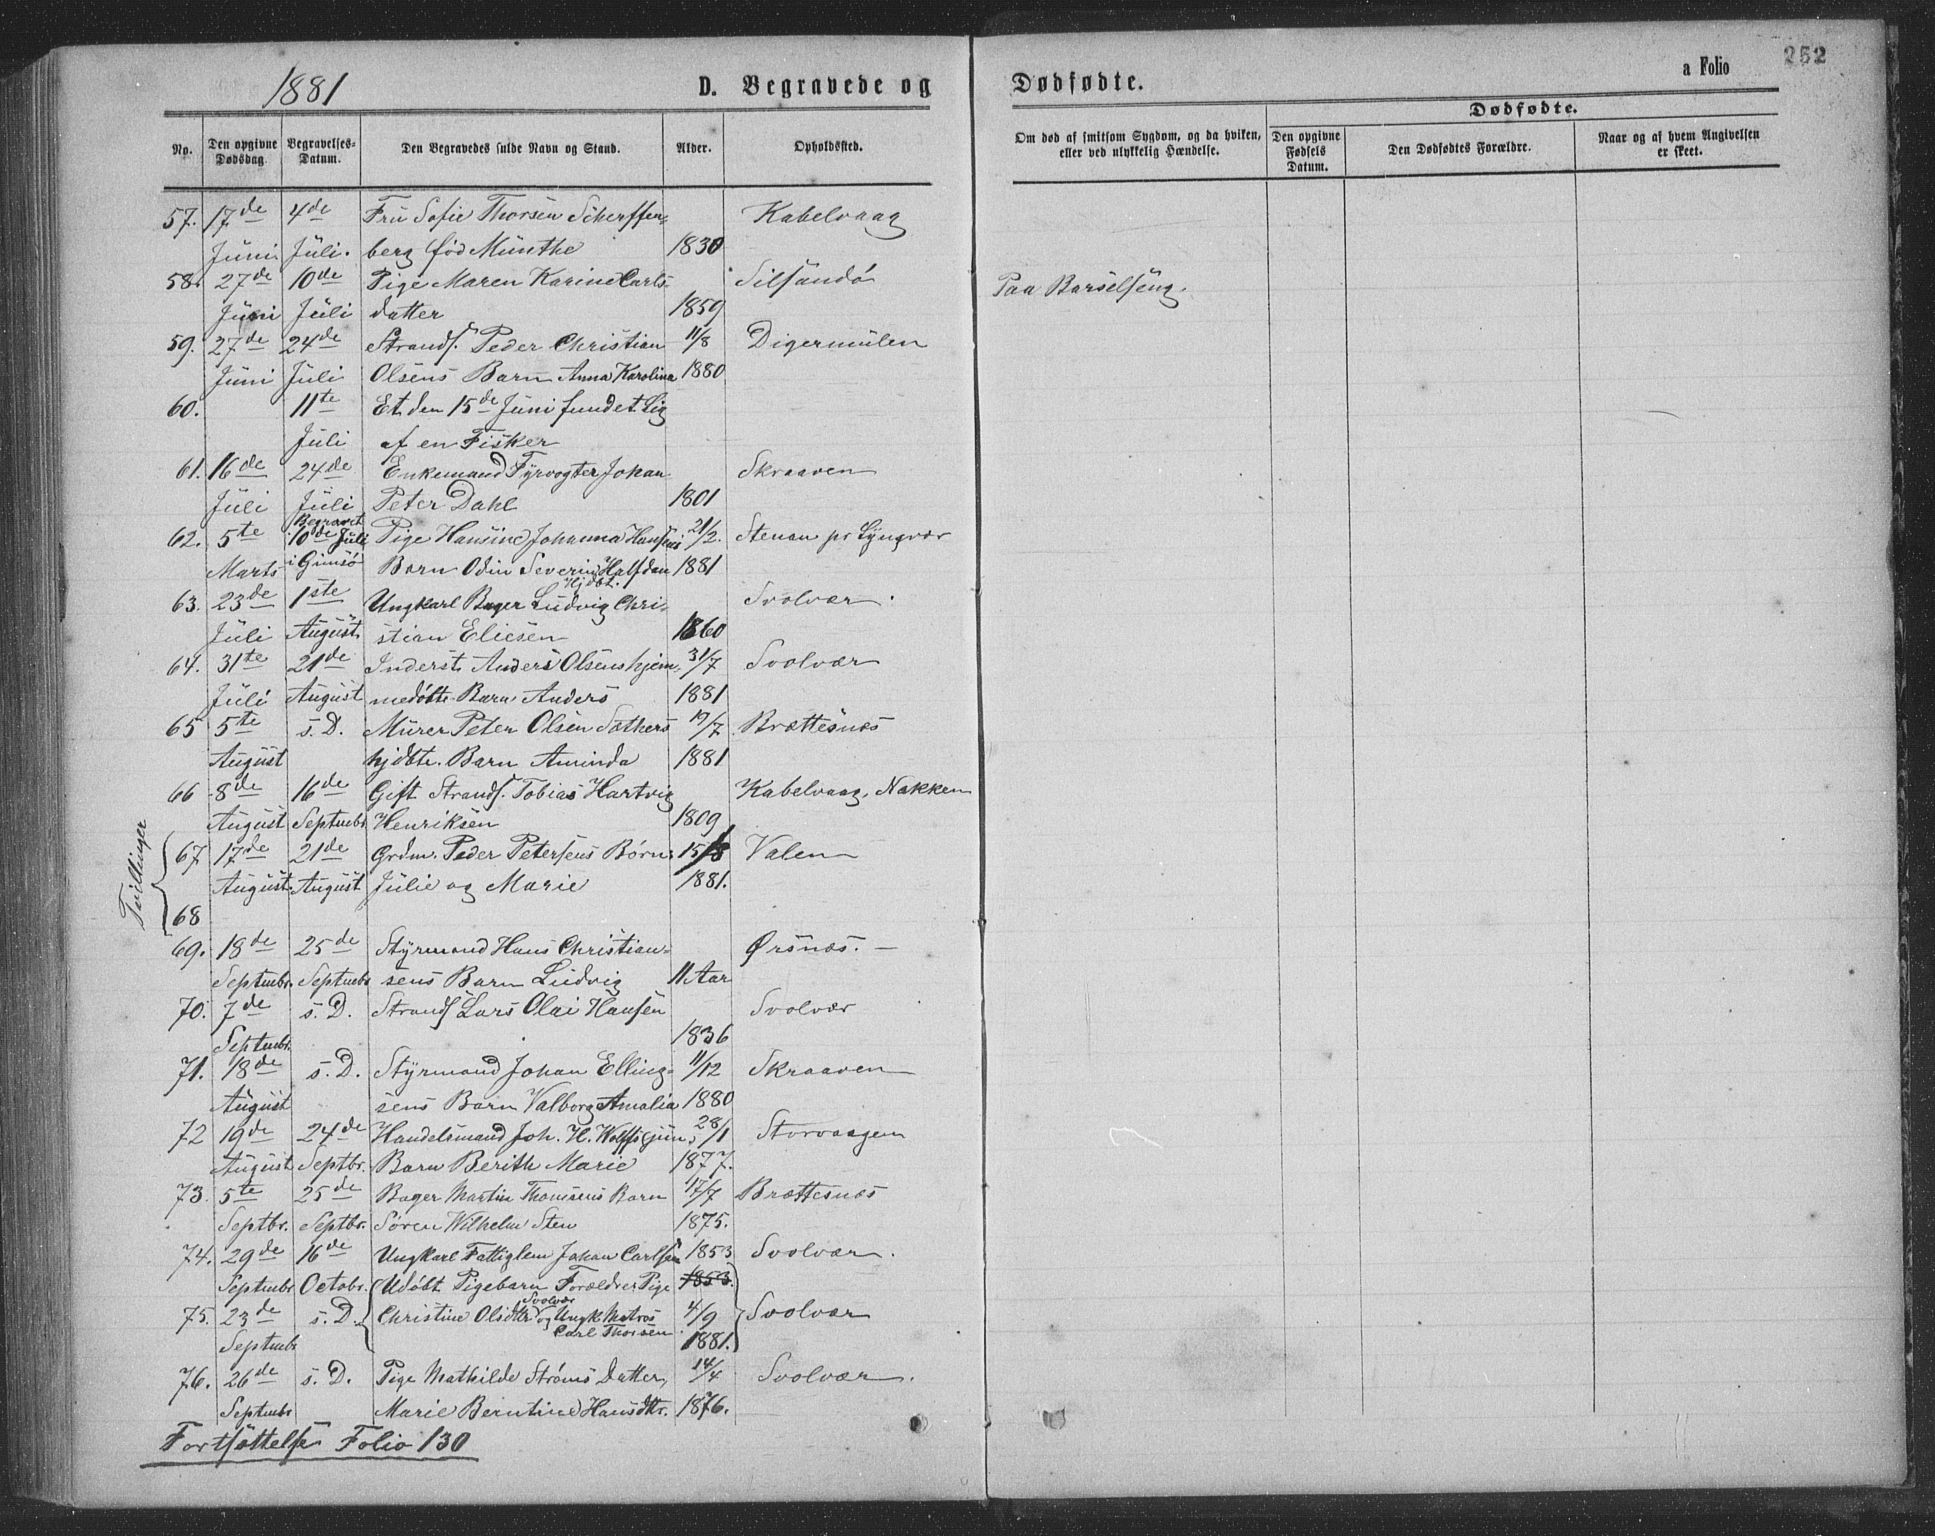 1881
D. Begravede og
Dødfødte.
a Folio
252
No.
Den opgivne Dødsdag.
Begravelses-Datum.
Den Begravedes fulde Navn og Stand.
Alder.
Opholdssted.
Om død af smitsom Sygdom, og da hvilken,
eller ved ulykkelig Hændelse.
Dødfødte.
Den opgivne Fødsels Datum.
Den Dødfødtes Forældre.
Naar og af hvem Angivelsen
er skeet.
57. 17de 4de Fru Sofie Thorsen Scherffen- Kabelvaag
Juni Juli. berg fød Münthe 1830
58. 27de 10de Pige Maren Karine Carls- Silsandö Paa Barselseng.
Juni Juli datter 1859
59. 27de 24de Strands. Peder Christian 11/8 Digermulen
Juni Juli Olsens Barn Anna Karolina 1880
60. 11te Et den 15de Juni fundet Lig
Juli af en Fisker
61. 16de 24de Enkemand Fyrvogter Johan Skraaven
Juli Juli Peter Dahl 1801
Begravet
62. 5te 10de Juli Pige Hansine Johanna Hansens 21/2. Stenan pr Lyngvær
Marts i Gimsö Barn Odin Severin Halfdan 1881
Hjdbt.
63. 23de 1ste Ungkarl Bager Ludvig Chri- Svolvær.
Juli August stian Eliesen 1860
64. 31te 21de Inderst Anders Olsens hjem- 31/7 Svolvær
Juli August medöbte Barn Anders 1881
65 5te s. D. Murer Peter Olsen Sæthers 19/7 Brættesnæs
August hjdbte. Barn Aminda 1881
66 8de 16de Gift Strands. Tobias Hartvig Kabelvaag, Nakken
August Septmbr Henriksen 1809
Tvillinger
67 17de 21de Grdm. Peder Petersens Børn: 15/8 Valen
August August Julie og Marie 1881.
68
69. 18de 25de Styrmand Hans Christian- Ørsnæs.
Septmbr. Septmbr sens Barn Ludvig 11 Aar
70. 7de s. D. Strands Lars Olai Hansen Svolvær
Septmbr. 1836
71. 18de s. D. Styrmand Johan Elling- 11/12 Skraaven
August sens Barn Valborg Amalia 1880
72 19de 24de Handelsmand Joh. H. Wolffs jun. 28/1 Storvaagen
August Septbr. Barn Berith Marie 1877.
73. 5te 25de Bager Martin Thomsens Barn 17/7 Brættesnæs
Septbr. Septbr. Søren Wilhelm Sten 1875.
74. 29de 16de Ungkarl Fattiglem Johan Carlsen 1853 Svolvær.
Septmbr Octobr. Udöbt Pigebarn Forældre: Pige 1853.
Svolvær
75. 23de s. D. Christine Olsdtr og Ungk Matros 4/9 Svolvær
Septmbr Carl Thorsen 1881.
76. 26de s. D. Pige Mathilde Ströms Datter, 14/4 Svolvær.
Septmbr Marie Berntine Hansdtr. 1876.
Fortsættelse Folio 130